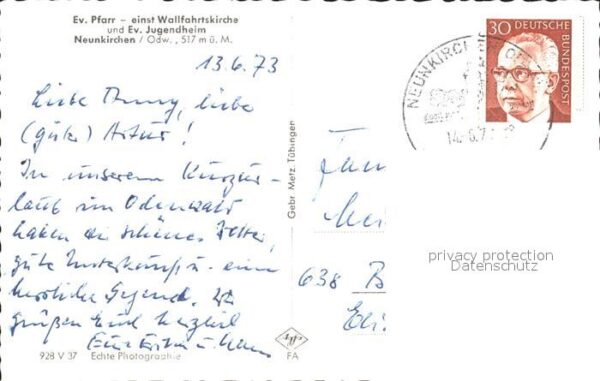 Ev. Pfarr - einst Wallfahrtskirche
und Ev. Jugendheim
Neunkirchen / Odw., 517 m ü. M.
13.6.73
Liebe Anny, liebe
(guter) Artur!
In unserem Kurzur-
laub im Odenwald
haben wir schönes Wetter,
gute Unterkunft u. eine
herrliche Gegend. Wir
grüßen Euch herzlich
Eure
928 V 37 Echte Photographie
Gebr. Metz, Tübingen
FA
30 DEUTSCHE
BUNDESPOST
NEUNKIRCH
14.-6.7
Fam
638 B
privacy protection
Datenschutz